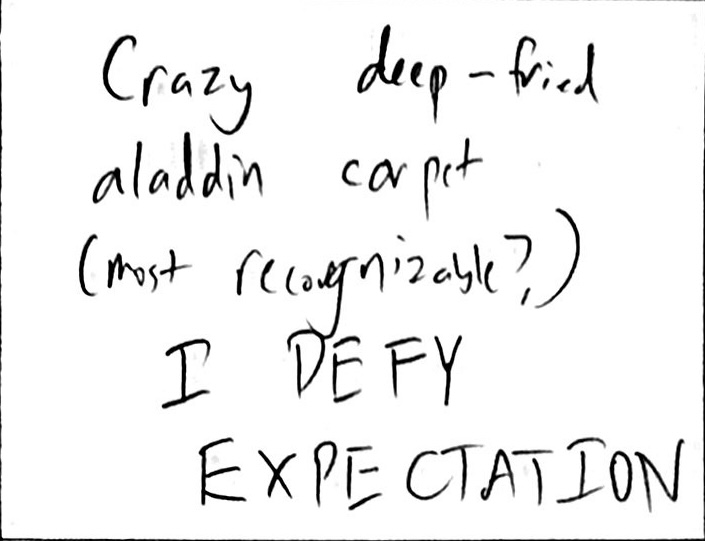 Crazy deep-fried
aladdin carpet
(most recognizable?)
I DEFY
EXPECTATION